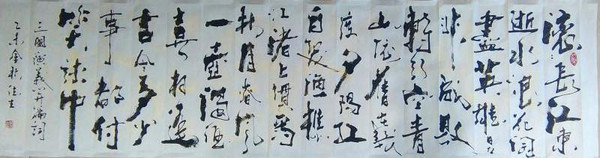 滚滚长江东
逝水浪花淘
盡英雄是
非成败
转头空青
山依舊在几
度夕阳红
白发渔樵
江渚上惯看
秋月春风
一壶浊酒
喜相逢
古今多少
事都付
笑谈中
三國演義开篇词
乙未金秋